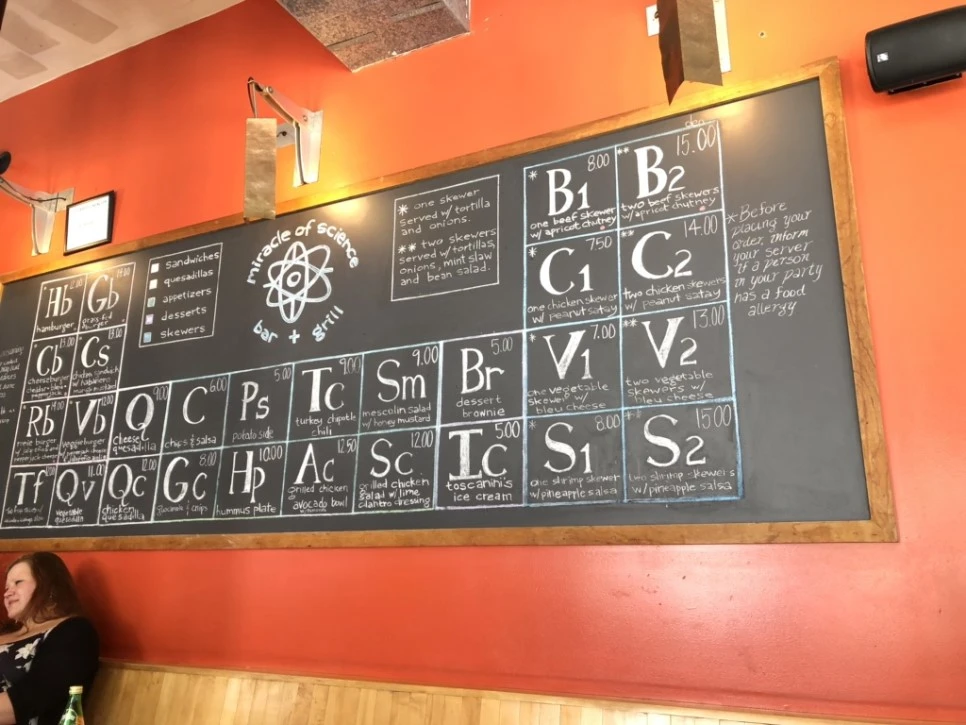 Sandwiches
quesadillas
appetizers
desserts
skewers
miracle of science
bar + grill
* one skewer
served w/ tortilla
and onions.
** two skewers
served w/ tortillas,
onions, mint slaw
and bean salad.
* 8.00
B1
one beef skewer
w/ apricot chutney
** 15.00
B2
two beef skewers
w/ apricot chutney
* 7.50
C1
one chicken skewer
w/ peanut satay
** 14.00
C2
two chicken skewers
w/ peanut satay
* 7.00
V1
one vegetable
skewer w/
bleu cheese
** 13.00
V2
two vegetable
skewers w/
bleu cheese
* 8.00
S1
one shrimp skewer
w/ pineapple salsa
** 15.00
S2
two shrimp skewers
w/ pineapple salsa
* Before
placing your
order, inform
your server
if a person
in your party
has a food
allergy
Hb
hamburger
Gb
burger
Cb
cheeseburger
Cs
chicken sandwich
w/ habanero
Rb
Vb
veggie burger
Q 9.00
cheese
quesadilla
C 6.00
chips & salsa
Ps 5.00
potato side
Tc 9.00
turkey chipotle
chili
Sm 9.00
mescolin salad
w/ honey mustard
Br 5.00
dessert
brownie
Tf
Qv 11.00
vegetable
quesadilla
Qc 12.00
chicken
quesadilla
Gc 8.00
guacamole & chips
Hp 10.00
hummus plate
Ac 12.50
grilled chicken
avocado bowl
Sc 12.00
grilled chicken
salad w/ lime
cilantro dressing
Ic 5.00
toscanini's
ice cream